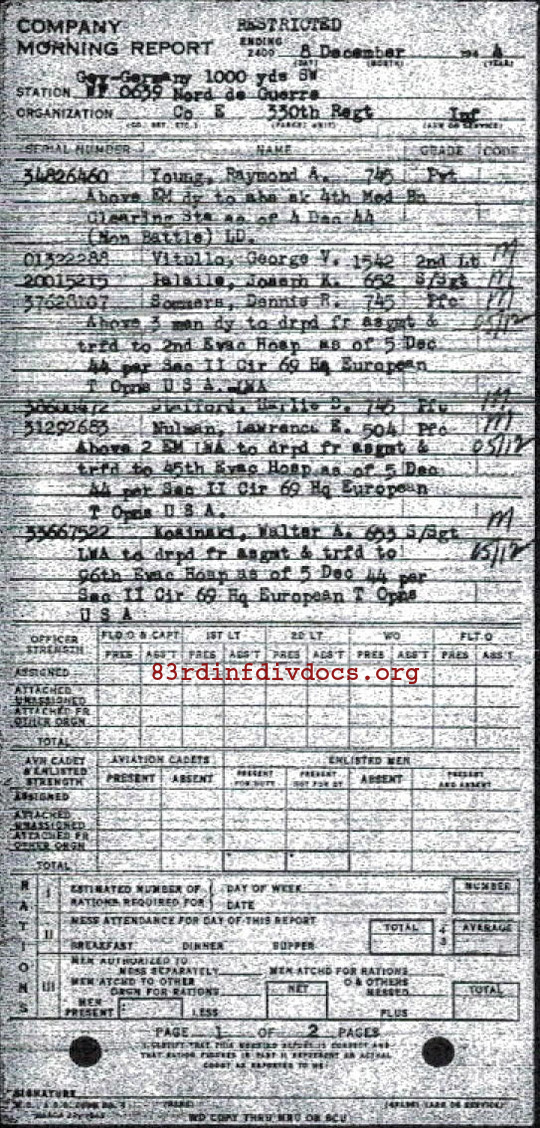 COMPANY RESTRICTED
MORNING REPORT ENDING 2400 8 December 194 4
(DAY) (MONTH) (YEAR)
Gey-Germany 1000 yds SW
STATION WF 0639 Nord de Guerre
ORGANIZATION Co E 330th Regt Inf
SERIAL NUMBER NAME GRADE CODE
34826460 Young, Raymond A. 745 Pvt
Above EM dy to abs sk 4th Med Bn
Clearing Sta as of 4 Dec 44
(Non Battle) LD.
01322288 Vitullo, George V. 1542 2nd Lt M
20015215 Joseph K. 652 S/Sgt M
37628107 Sommars, Dennis R. 745 Pfc M
Above 3 men dy to drpd fr asgmt & 05/12
trfd to 2nd Evac Hosp as of 5 Dec
44 per Sec II Cir 69 Hq European
T Opns U S A. LWA
Stafford, Harlie D. 745 Pfc M
31292683 Nulman, Lawrence E. 504 Pfc M
Above 2 EM LWA to drpd fr asgmt & 05/12
trfd to 45th Evac Hosp as of 5 Dec
44 per Sec II Cir 69 Hq European
T Opns U S A.
33667522 Kosinski, Walter A. 653 S/Sgt M
LWA to drpd fr asgmt & trfd to 05/12
96th Evac Hosp as of 5 Dec 44 per
Sec II Cir 69 Hq European T Opns
U S A
OFFICER STRENGTH FLD O & CAPT 1ST LT 2D LT WO FLT O
PRES ABS'T PRES ABS'T PRES ABS'T PRES ABS'T PRES ABS'T
ASSIGNED
83rdinfdivdocs.org
ATTACHED UNASSIGNED
ATTACHED FR OTHER ORGN
TOTAL
AVN CADET & ENLISTED STRENGTH AVIATION CADETS ENLISTED MEN
PRESENT ABSENT PRESENT FOR DUTY PRESENT NOT FOR DY ABSENT PRESENT AND ABSENT
ASSIGNED
ATTACHED UNASSIGNED
ATTACHED FR OTHER ORGN
TOTAL
RATIONS
I ESTIMATED NUMBER OF RATIONS REQUIRED FOR DAY OF WEEK NUMBER
DATE
II MESS ATTENDANCE FOR DAY OF THIS REPORT TOTAL ÷ 3 AVERAGE
BREAKFAST DINNER SUPPER
III MEN AUTHORIZED TO MESS SEPARATELY MEN ATCHD FOR RATIONS
MEN ATCHD TO OTHER ORGN FOR RATIONS NET O & OTHERS MESSED TOTAL
MEN PRESENT LESS PLUS
PAGE 1 OF 2 PAGES
I CERTIFY THAT THIS MORNING REPORT IS CORRECT AND
THAT RATION FIGURES IN PART II REPRESENT AN ACTUAL
COUNT AS REPORTED TO ME
SIGNATURE
WD COPY THRU MRU OR SCU